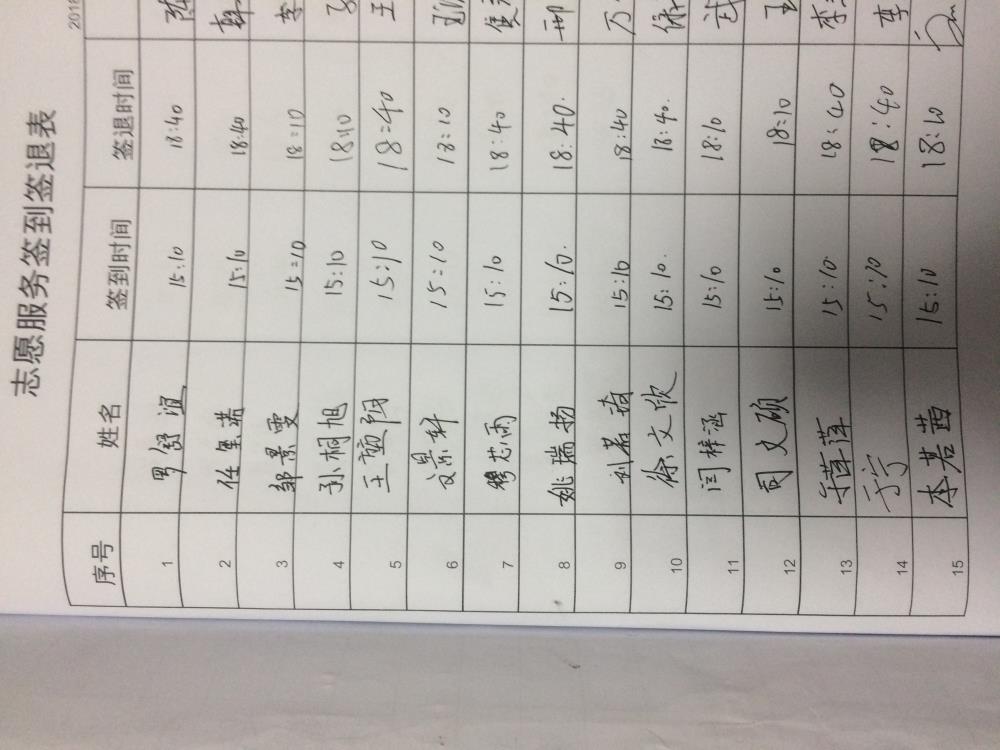 志愿服务签到签退表
2018
序号 姓名 签到时间 签退时间
1 罗舒谊 15:10 18:40
2 任玺蒨 15:10 18:40
3 邹景雯 15:10 18:10
4 孙桐旭 15:10 18:10
5 王 阳 15:10 18:40 王
6 文景科 15:10 18:10
7 穆芯雨 15:10 18:40
8 姚瑞扬 15:10. 18:40. 邢
9 刘若琦 15:10 18:40 万
10 徐文欣 15:10. 18:40. 徐
11 闫梓涵 15:10 18:10 武
12 司文硕 15:10 18:10 王
13 15:10 18:40 李
14 于宁 15:10 18:40 李
15 李若茜 15:10 18:10